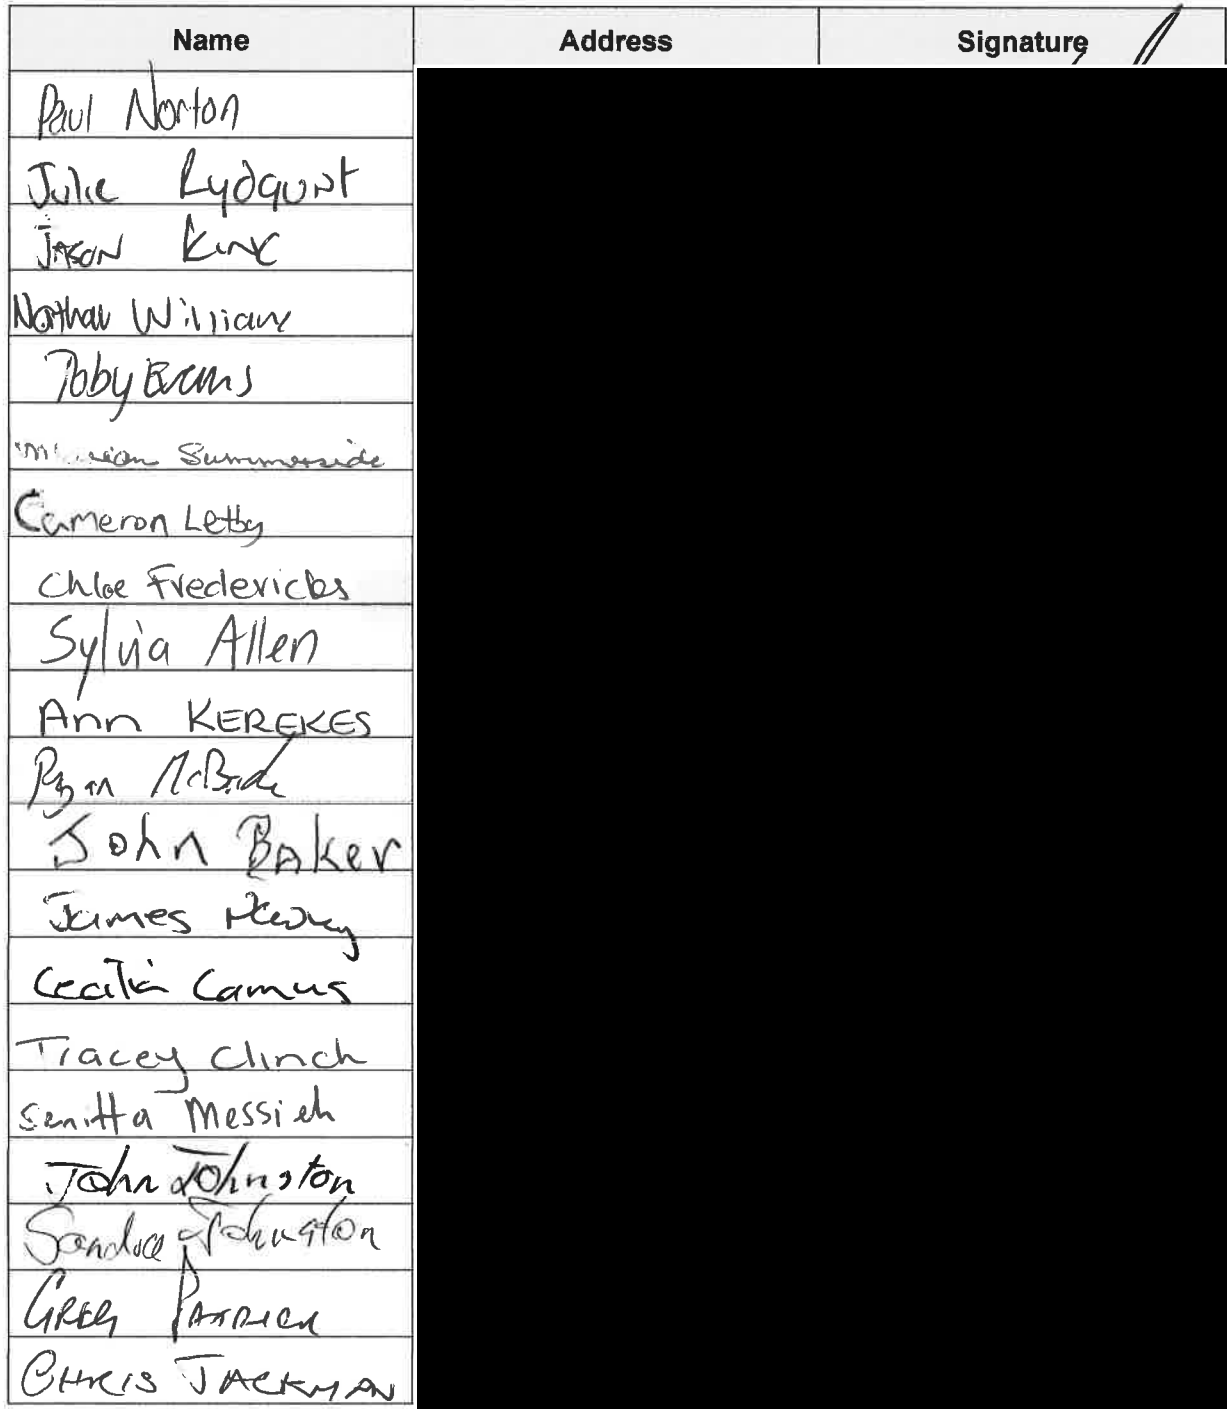 Name Address Signature
Paul Norton
Julie Rydquist
JASON KING
Nathan Williams
Toby Evans
Summerside
Cameron Letby
Chloe Fredericks
Sylvia Allen
Ann KEREKES
Ryan McBride
John BAKer
James
Cecilia Camus
Tracey Clinch
Messieh
John Johnston
Sandra Johnston
GREG PATRICK
CHRIS JACKMAN